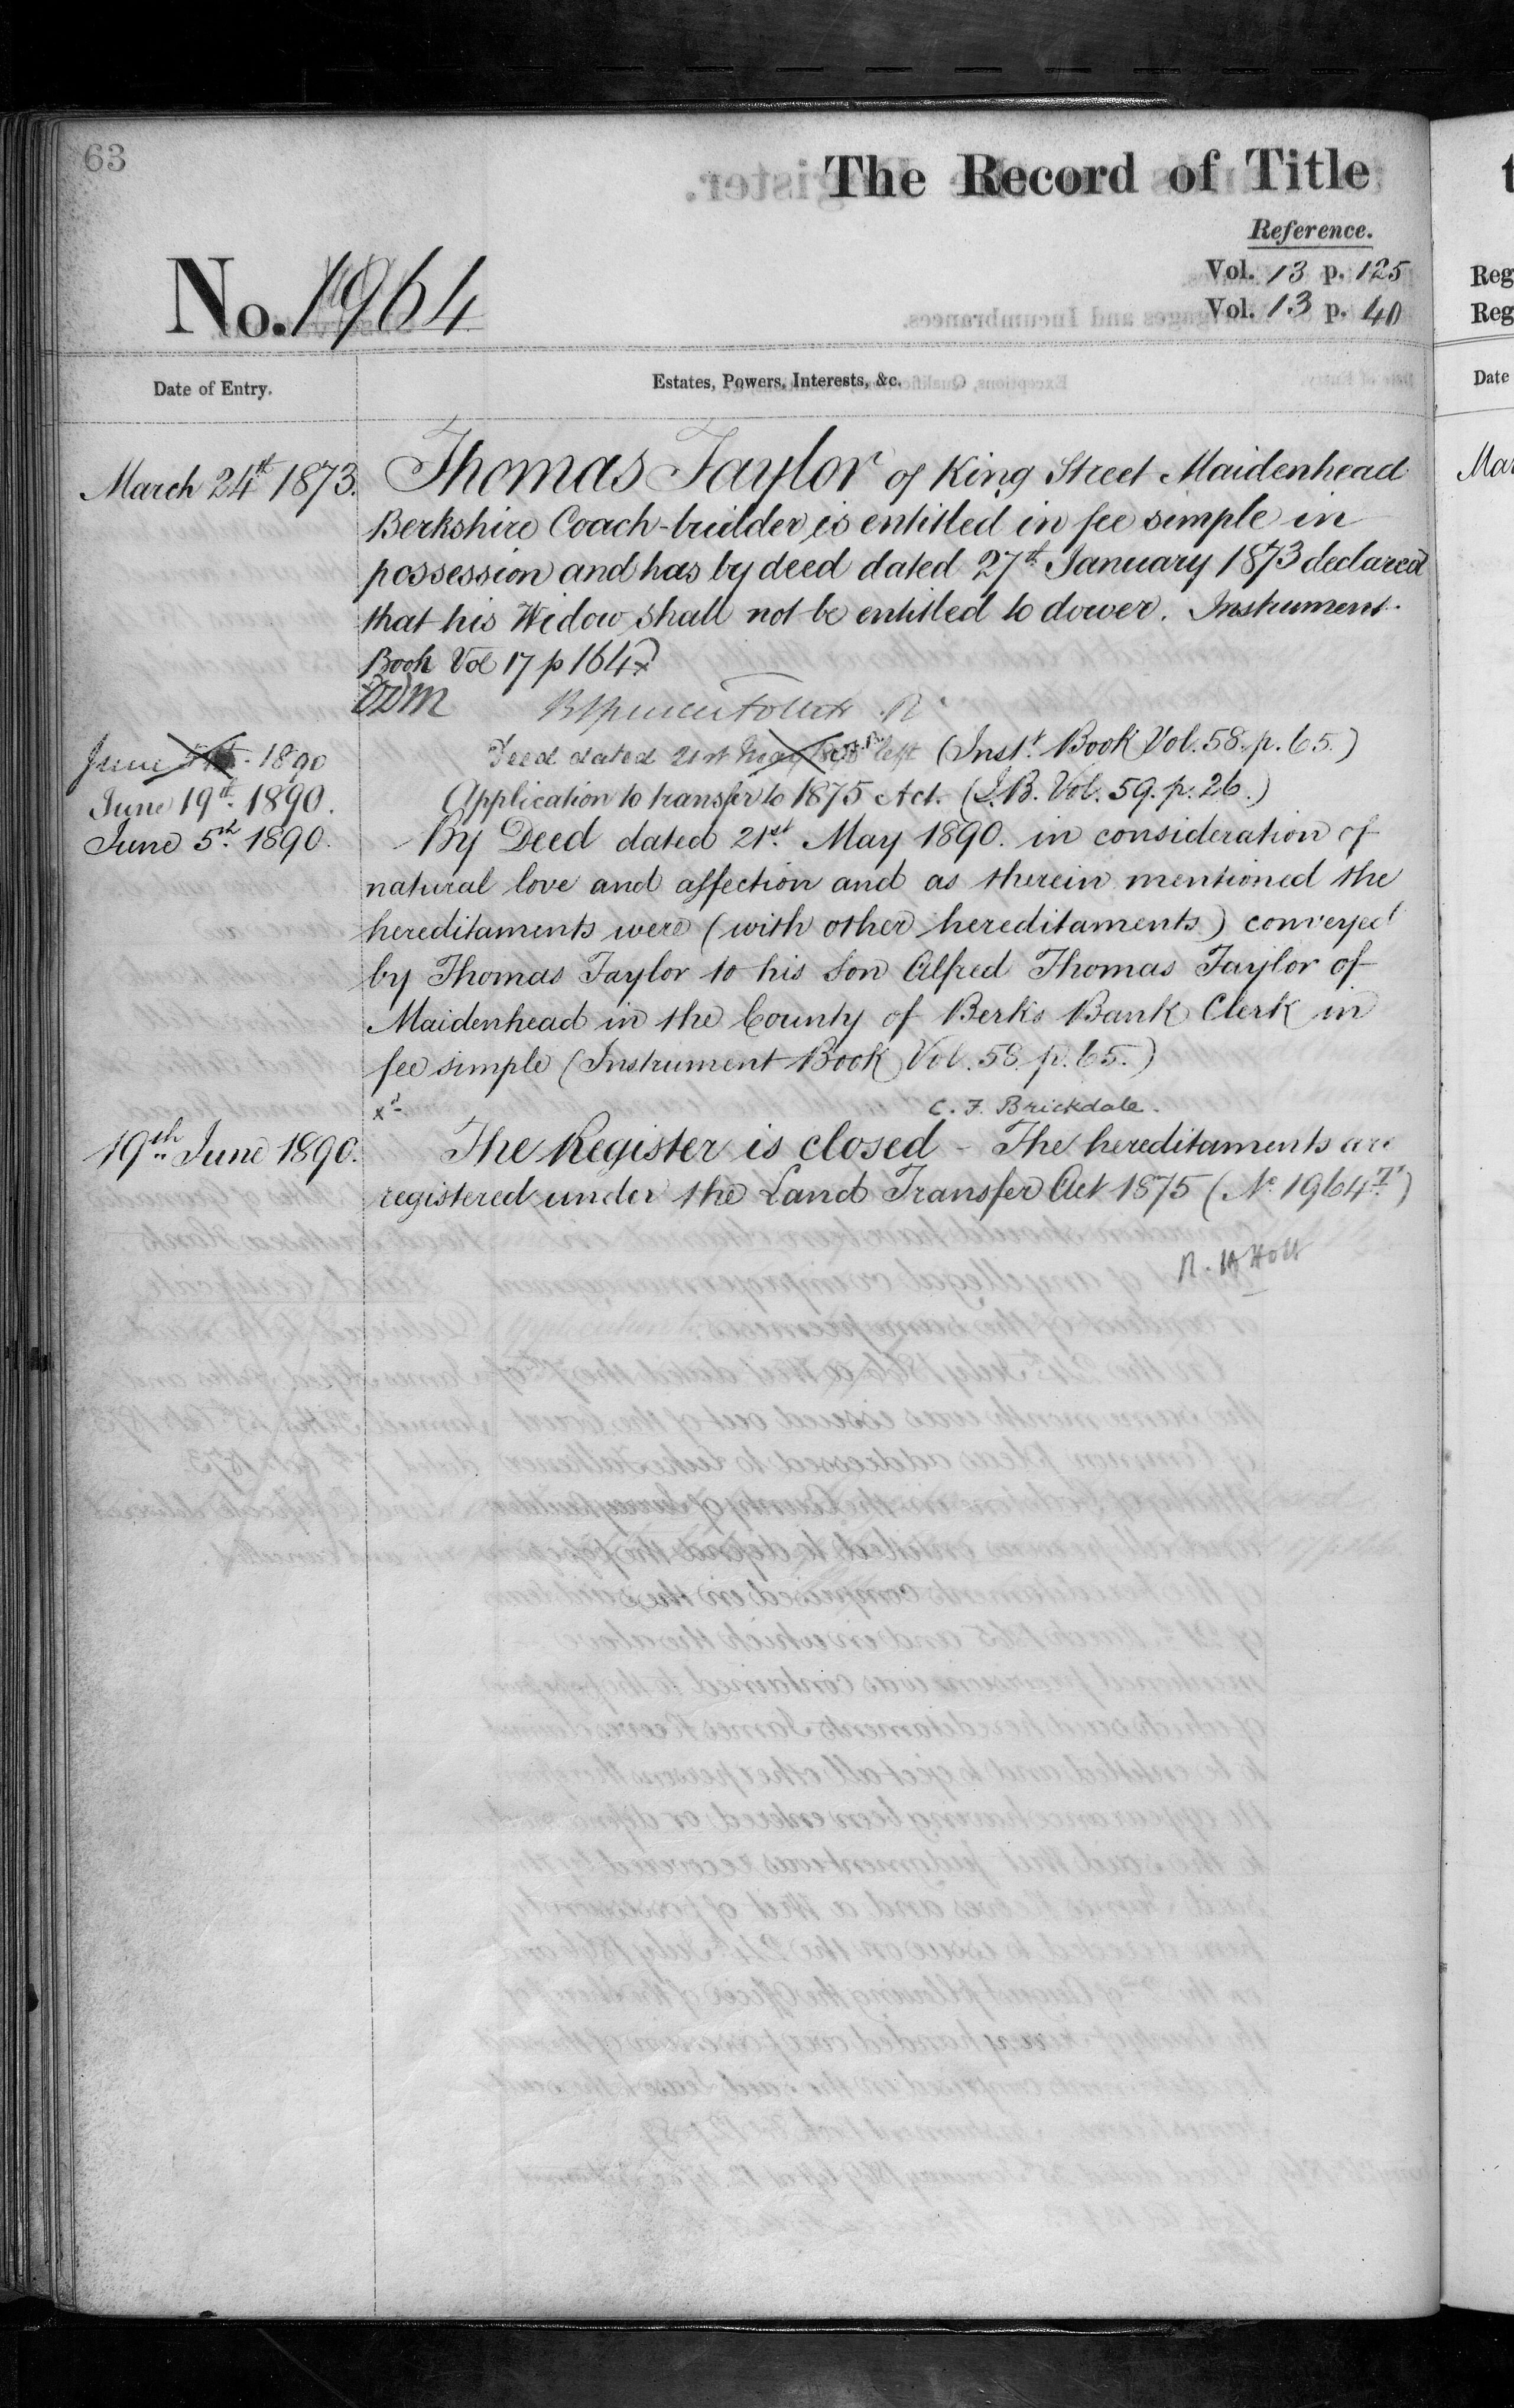 63
The Record of Title
Reference.
Vol. 13 p. 125
Vol. 13 p. 40
No. 1964
Date of Entry.
Estates, Powers, Interests, &c.
March 24th 1873.
Thomas Taylor of King Street Maidenhead
Berkshire Coach-builder is entitled in fee simple in
possession and has by deed dated 27th January 1873 declared
that his Widow shall not be entitled to dower. Instrument
Book Vol 17 p 164
June 5th 1890
Deed dated 21st May 1890 left (Inst. Book Vol. 58. p. 65.)
June 19th 1890.
Application to transfer to 1875 Act. (I.B. Vol. 59. p. 26.)
June 5th 1890.
By Deed dated 21st May 1890. in consideration of
natural love and affection and as therein mentioned the
hereditaments were (with other hereditaments) conveyed
by Thomas Taylor to his Son Alfred Thomas Taylor of
Maidenhead in the County of Berks Bank Clerk in
fee simple (Instrument Book Vol. 58. p. 65.)
xd C. F. Brickdale.
19th June 1890.
The Register is closed - The hereditaments are
registered under the Land Transfer Act 1875 (No. 1964)
R. H Holt
t
Reg
Reg
Date
Mar